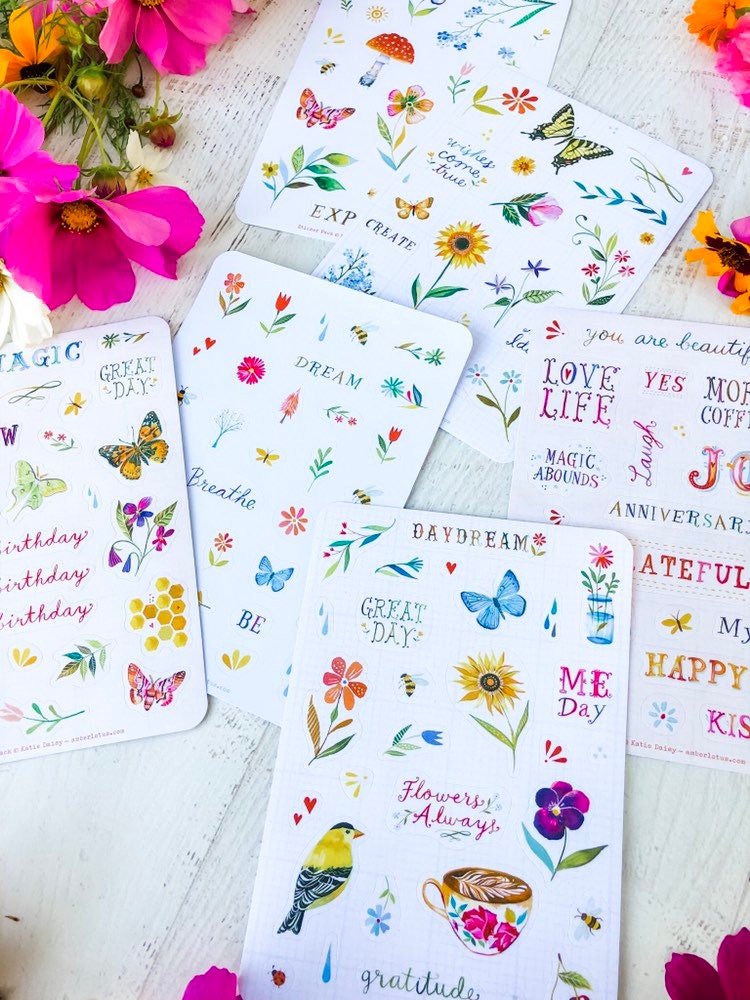 wishes
come
true
EXP
CREATE
Sticker Pack ©
MAGIC
GREAT
DAY
W
Birthday
Birthday
Birthday
Katie Daisy – amberlotus.com
DREAM
Breathe
BE
you are beautif
LOVE
LIFE
YES
MOR
COFF
MAGIC
ABOUNDS
Laugh
JO
ANNIVERSAR
ATEFUL
My
HAPPY
KIS
© Katie Daisy – amberlotus.com
DAYDREAM
GREAT
DAY
ME
Day
Flowers
Always
gratitude